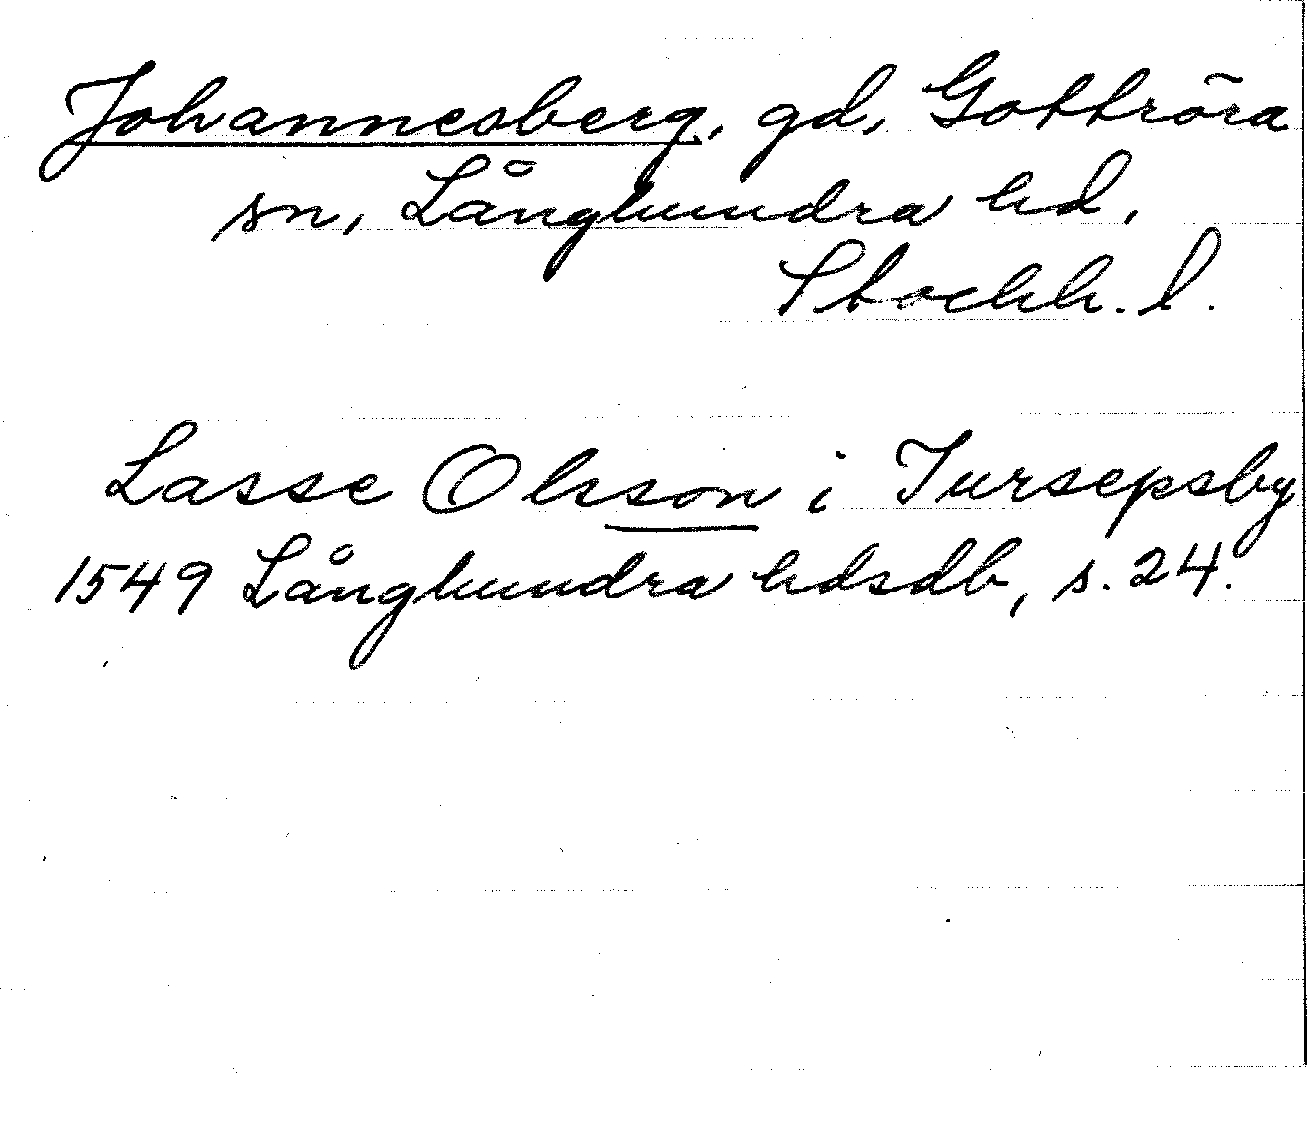 Johannesberg, gd, Gottröra
sn, Långhundra hd,
Stockh. l.
Lasse Olsson i Tursepsby
1549 Långhundra hdsdb, s. 24.